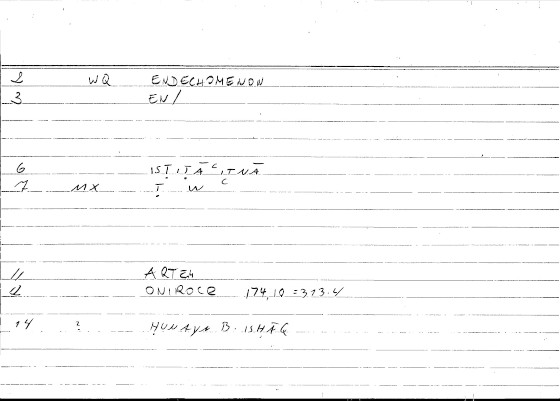 2 WQ ENDECHOMENON
3 EN/
6 IṢTIṬĀʿITNĀ
7 MX Ṭ W ʿ
11 ARTEM
ONIROCR 174,10 = 313.4
14 ? ḤUNAYN B. ISḤĀQ